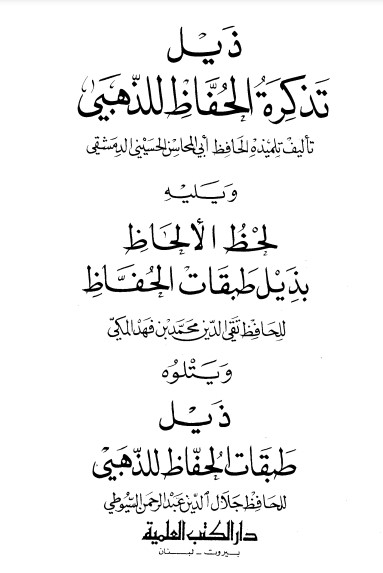 ذَيْل
تَذكِرَةُ الحُفَّاظِ للذَّهَبيّ
تأليف تلميذه الحافظ أبي المحاسن الحسيني الدمشقي
وَيَليْهِ
لحظُ الألحَاظِ
بذَيْل طَبقَات الحُفَّاظِ
للحَافِظ تقي الدين محمّد بن فهد المكيّ
وَيَتْلوُه
ذَيْل
طَبقَات الحُفّاظ للذّهَبيّ
للحافِظ جلال الدّين عَبد الرحمن السّيُوطي
دار الكتب العلمية
بيروت - لبنان